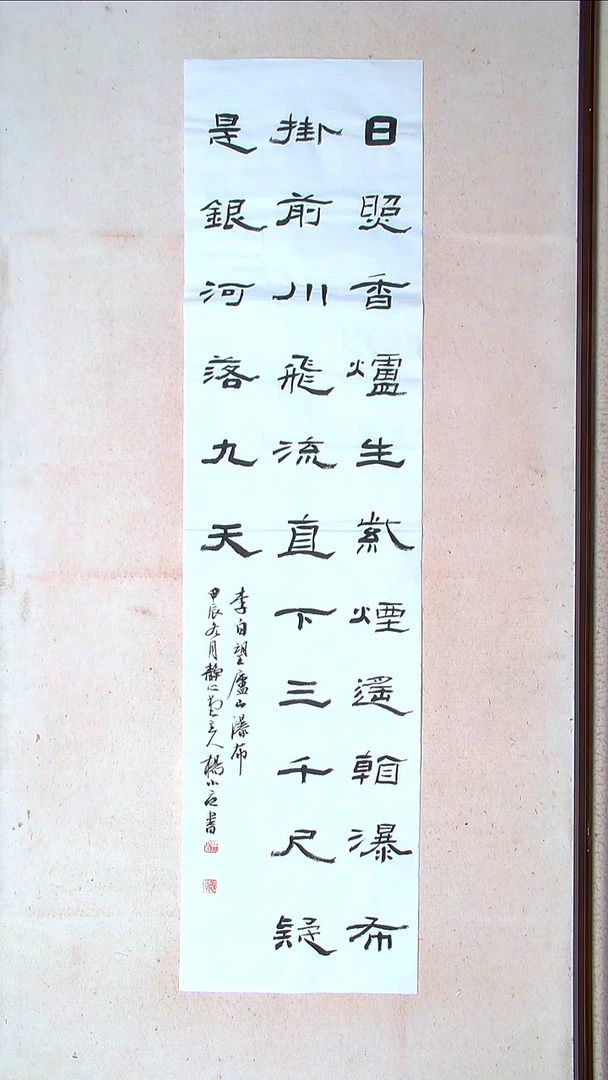 日照香爐生紫煙遙看瀑布
掛前川飛流直下三千尺疑
是銀河落九天
李白望廬山瀑布
甲辰冬月靜心堂主人楊小石書